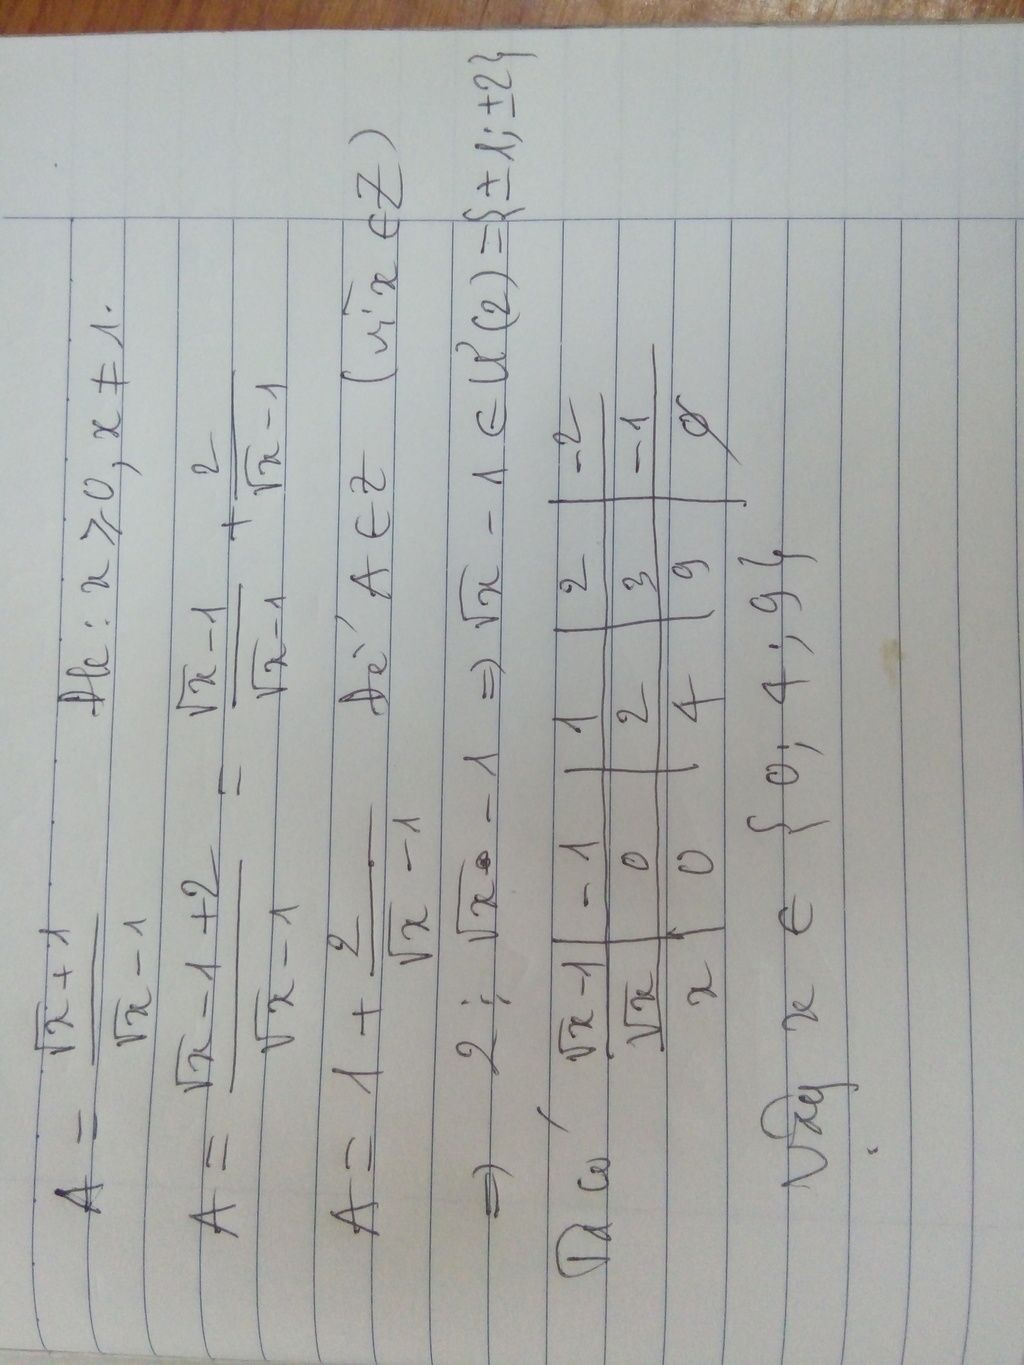 A = (√x + 1)/(√x - 1) Đk : x ⩾ 0, x ≠ 1.
A = (√x - 1 + 2)/(√x - 1) = (√x - 1)/(√x - 1) + 2/(√x - 1)
A = 1 + 2/(√x - 1) Để A ∈ Z (vì x ∈ Z)
⇒ 2 ⋮ √x - 1 ⇒ √x - 1 ∈ Ư(2) = {± 1; ±2}
Ta có √x - 1 | - 1 | 1 | 2 | - 2
√x | 0 | 2 | 3 | - 1
x | 0 | 4 | 9 | ∅
Vậy x ∈ {0; 4; 9}